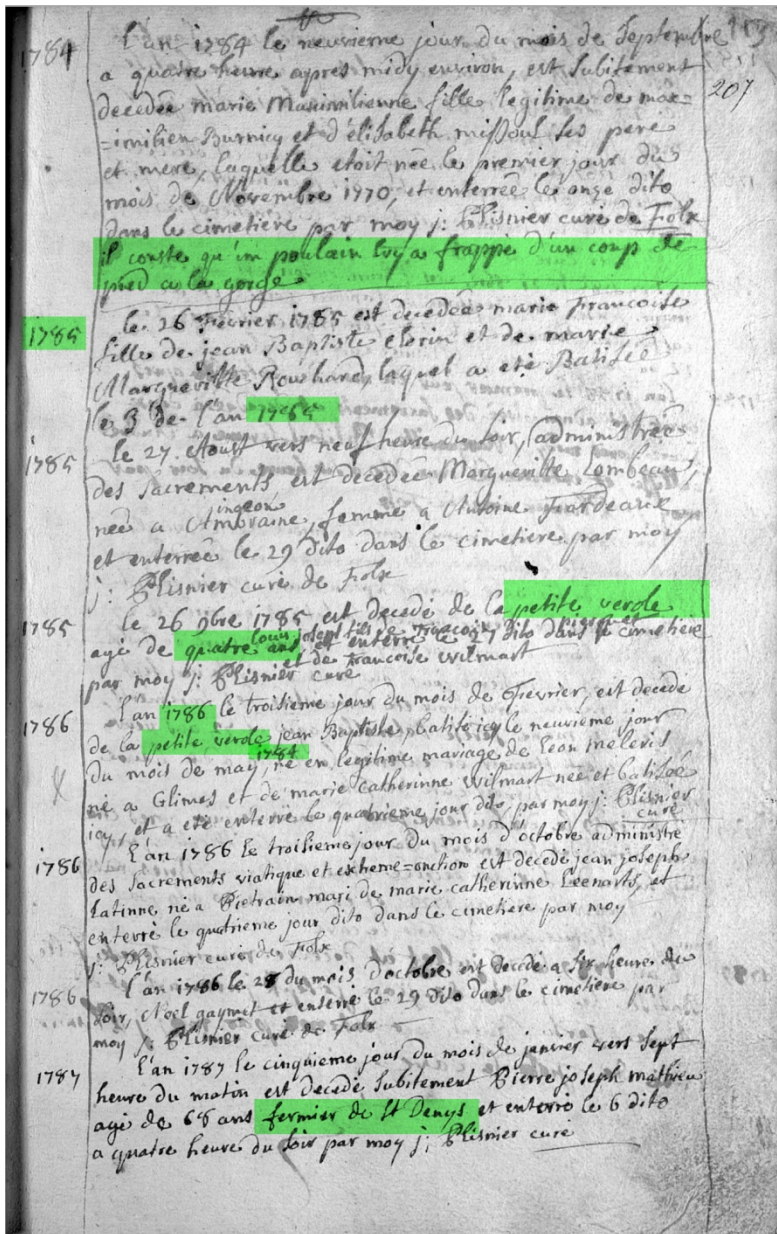 L'an 1784 le neuvieme jour du mois de Septembre
1784
a quatre heure apres midy environ, est subitement
decedée marie Maximilienne fille legitime de max=
207
=imilien Burnicq et d'élisabeth missoul ses pere
et mere, laquelle etoit née le premier jour du
mois de Novembre 1770, et enterrée le onze dito
dans le cimetière par moy j: Plisnier curé de Folx
il conste qu'un poulain luy a frappé d'un coup de
pied a la gorge
le 26 Fevrier 1785 est decedée marie Francoise
1785
fille de jean Baptiste clerin et de marie
Margueritte Bouchard, laquel a eté Batisée
le 3 de l'an 1765
le 27 Aoust vers neuf heure du soir, administrée
1785
des Sacrements est decedée Margueritte Lombeau,
née a Ambraine, femme a Antoine Fardeau
ingeon
et enterrée le 29 dito dans le cimetière par moy
j: Plisnier curé de Folx
le 26 9bre 1785 est decedé de la petite verole
1785
agé de quatre ans, et enterré le 27 dito dans le cimetière
Louis joseph fils de Francois
et de Francoise wilmart
par moy j: Plisnier curé
L'an 1786 le troisieme jour du mois de Fevrier, est decede
1786
de la petite verole jean Baptiste batisé icy le neuvieme jour
1784
du mois de may, né en legitime mariage de Leon meleris
né a Glimes et de marie catherinne wilmart née et batisée
icy, et a eté enterré le quatrieme jour dito, par moy j: Plisnier
curé
L'an 1786 le troisieme jour du mois d'octobre administre
1786
des Sacrements viatique et extreme=onction est decedé jean joseph
Latinne né a Pietrain mari de marie catherinne Leenarts, et
enterré le quatrieme jour dito dans le cimetiere par moy
j: Plisnier curé de Folx
L'an 1786 le 28 du mois d'octobre est decedé a six heure du
1786
soir, Noel gaymet et enterré le 29 dito dans le cimetière par
moy j: Plisnier curé de Folx
L'an 1787 le cinquieme jour du mois de janvier vers sept
1787
heure du matin est decedé subitement Pierre joseph mathieu
agé de 68 ans fermier de St Denys et enterré le 6 dito
a quatre heure du soir par moy j; Plisnier curé